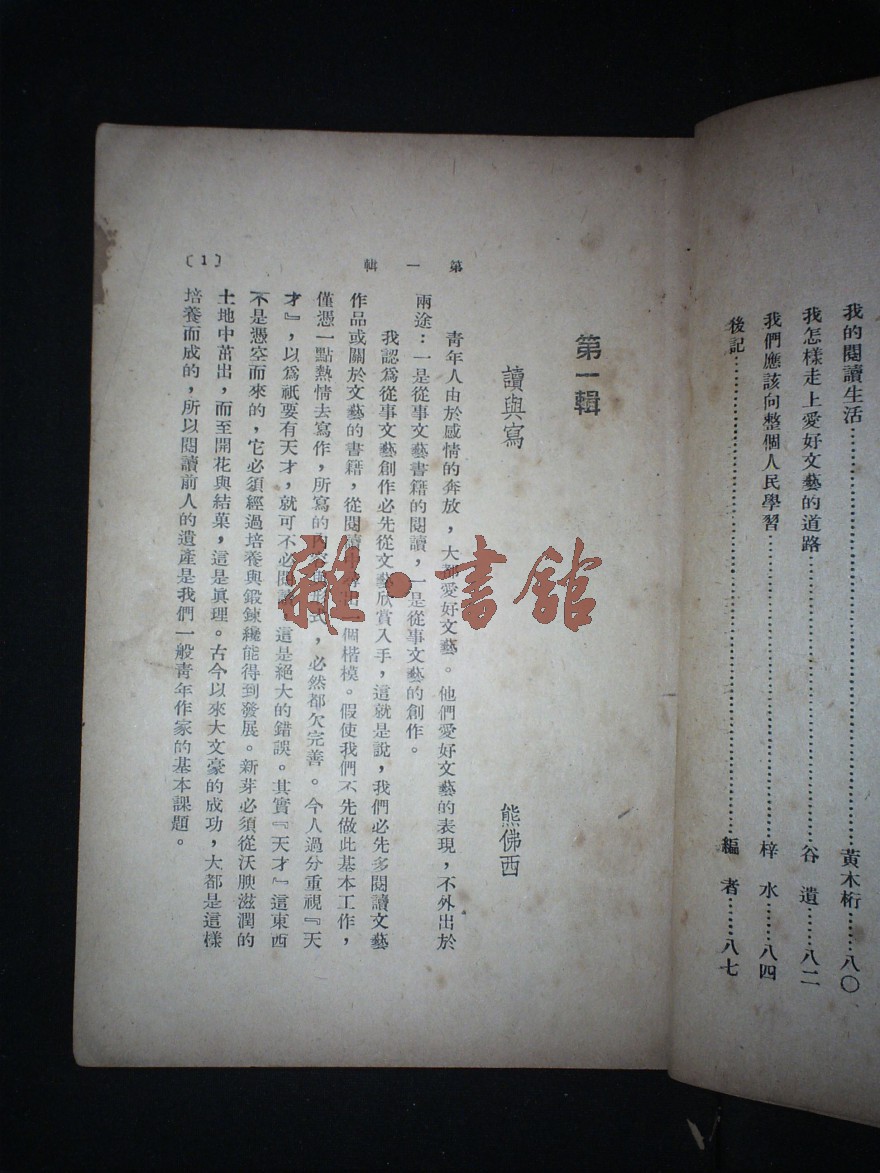 我的閱讀生活……黃木桁……八〇
我怎樣走上愛好文藝的道路……谷　遺……八二
我們應該向整個人民學習……梓　水……八四
後記……編　者……八七
第一輯
讀與寫
熊佛西
青年人由於感情的奔放，大都愛好文藝。他們愛好文藝的表現，不外出於
兩途：一是從事文藝書籍的閱讀，一是從事文藝的創作。
我認爲從事文藝創作必先從文藝欣賞入手，這就是說，我們必先多閱讀文藝
作品或關於文藝的書籍，從閱讀 一個楷模。假使我們不先做此基本工作，
僅憑一點熱情去寫作，所寫的內 形式，必然都欠完善。今人過分重視『天
才』，以爲祇要有天才，就可不必閱讀，這是絕大的錯誤。其實『天才』這東西
不是憑空而來的，它必須經過培養與鍛鍊纔能得到發展。新芽必須從沃腴滋潤的
土地中茁出，而至開花與結菓，這是眞理。古今以來大文豪的成功，大都是這樣
培養而成的，所以閱讀前人的遺產是我們一般青年作家的基本課題。
第一輯
〔1〕
雜·書館